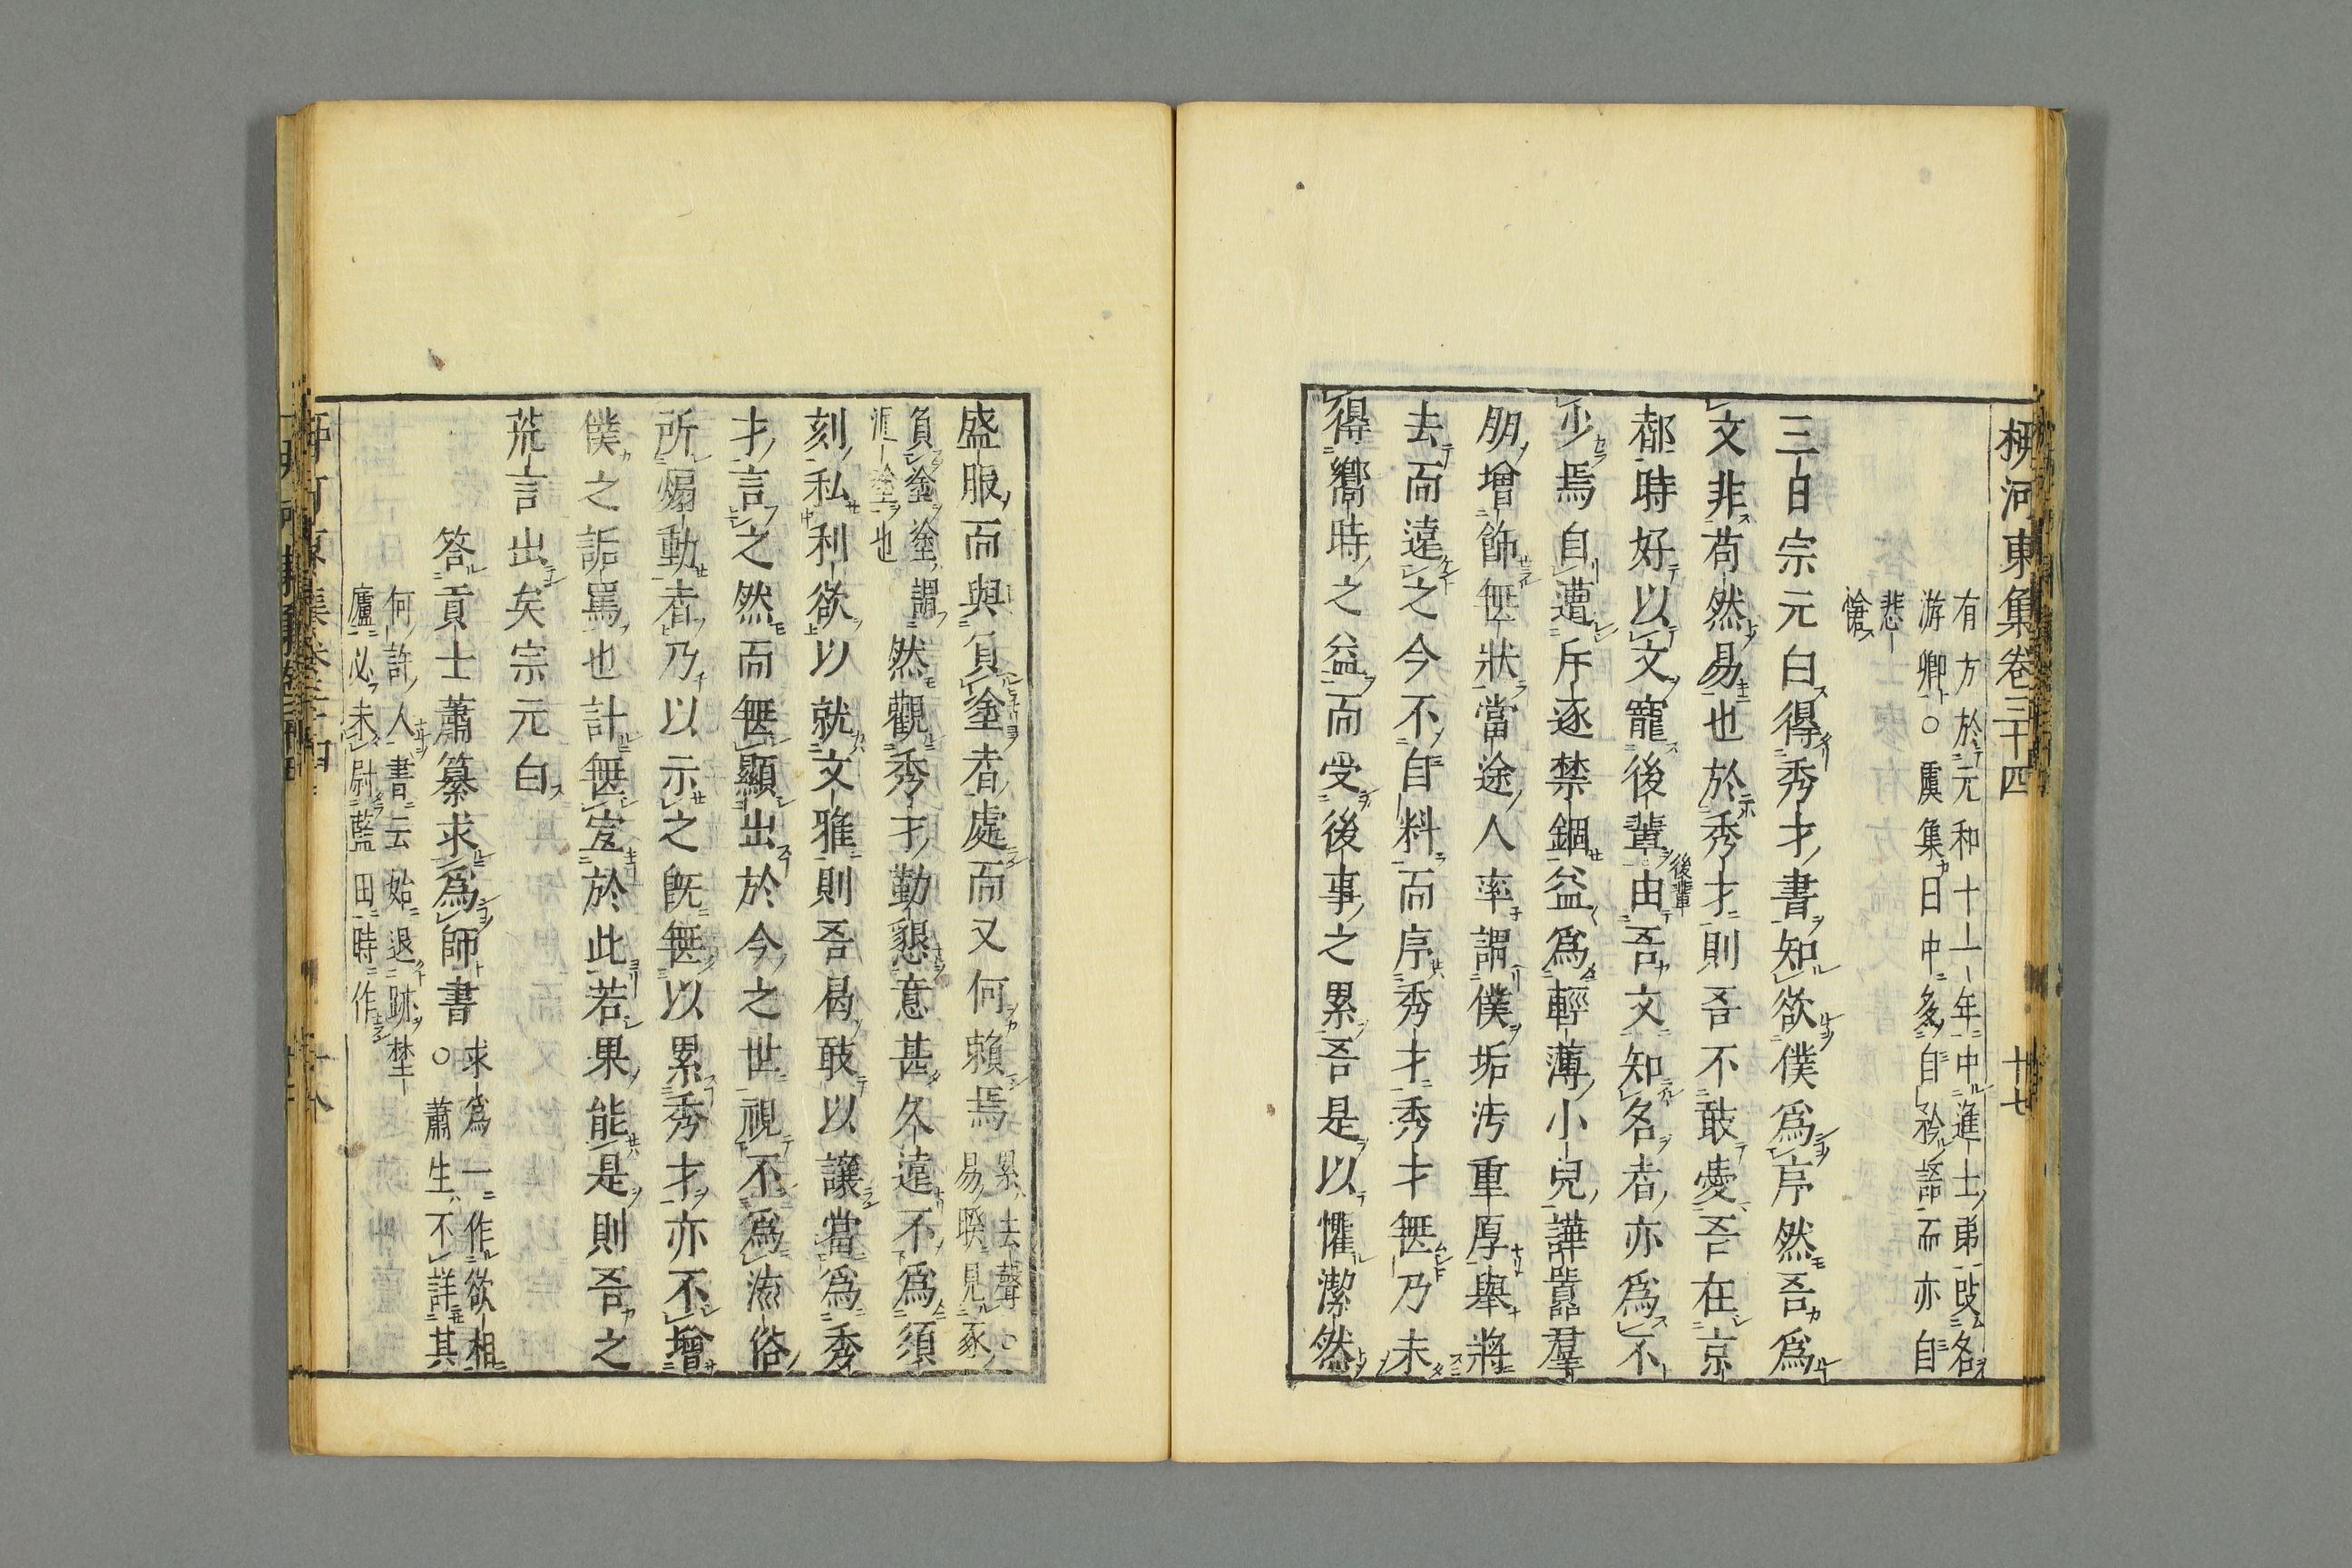 柳河東集卷三十四 十七
有方於元和十一年中進士弟改名
游卿○虞集曰中多自矜譎而亦自
悲愴
三日宗元白得秀才書知欲僕爲序然吾爲
文非苟然易也於秀才則吾不敢愛吾在京
都時好以文寵後輩後輩由吾文知名者亦爲不
少焉自遭斥逐禁錮益爲輕薄小兒譁囂羣
朋增飾無狀當途人率謂僕垢汚重厚舉將
去而遠之今不自料而序秀才秀才無乃未
得嚮時之益而受後事之累吾是以懼潔然
盛服而與負塗者處而又何賴焉累去聲○易睽見豕
負塗塗謂
滙塗也
然觀秀才勤懇意甚久遠不爲須
刻私利欲以就文雅則吾曷敢以讓當爲秀
才言之然而無顯出於今之世視不爲流俗
所煽動者乃以示之旣無以累秀才亦不增
僕之詬罵也計無宜於此若果能是則吾之
荒言出矣宗元白
答貢士蕭纂求爲師書○求爲一作欲相
蕭生不詳其
何許人書云始退跡埜
廬必未尉藍田時作